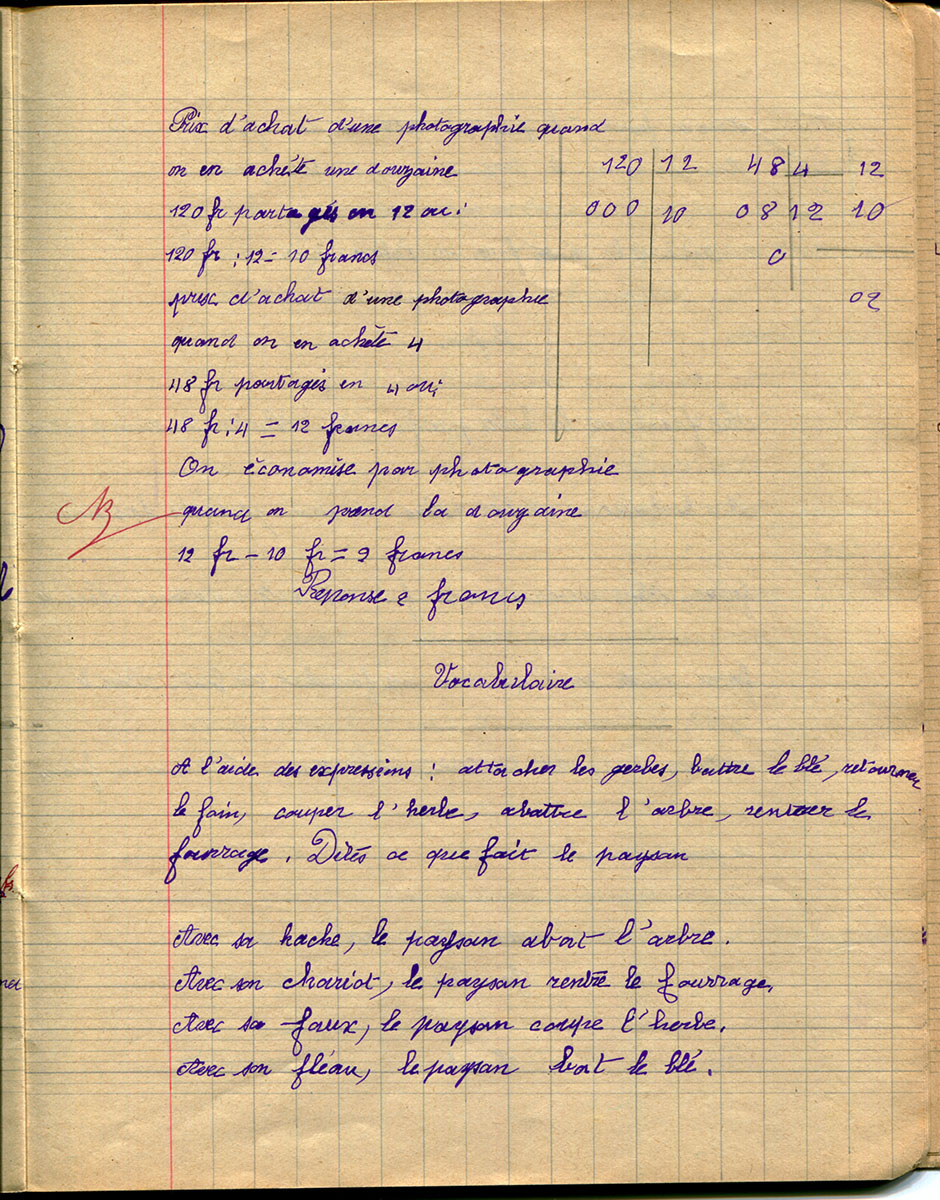 Prix d'achat d'une photographie quand
on en achète une douzaine
120 fr partagés en 12 ou :
120 fr : 12 = 10 francs
prix d'achat d'une photographie
quand on en achète 4
48 fr partagés en 4 ou :
48 fr : 4 = 12 francs
On économise par photographie
quand on prend la douzaine
12 fr – 10 fr = 2 francs
Réponse 2 francs
120 12 48 4 12
000 10 08 12 10
0
02
B
Vocabulaire
A l'aide des expressions : attacher les gerbes, battre le blé, retourner
le foin, couper l'herbe, abattre l'arbre, rentrer le
fourrage. Dites ce que fait le paysan
Avec sa hache, le paysan abat l'arbre.
Avec son chariot, le paysan rentre le fourrage.
Avec sa faux, le paysan coupe l'herbe.
Avec son fléau, le paysan bat le blé.